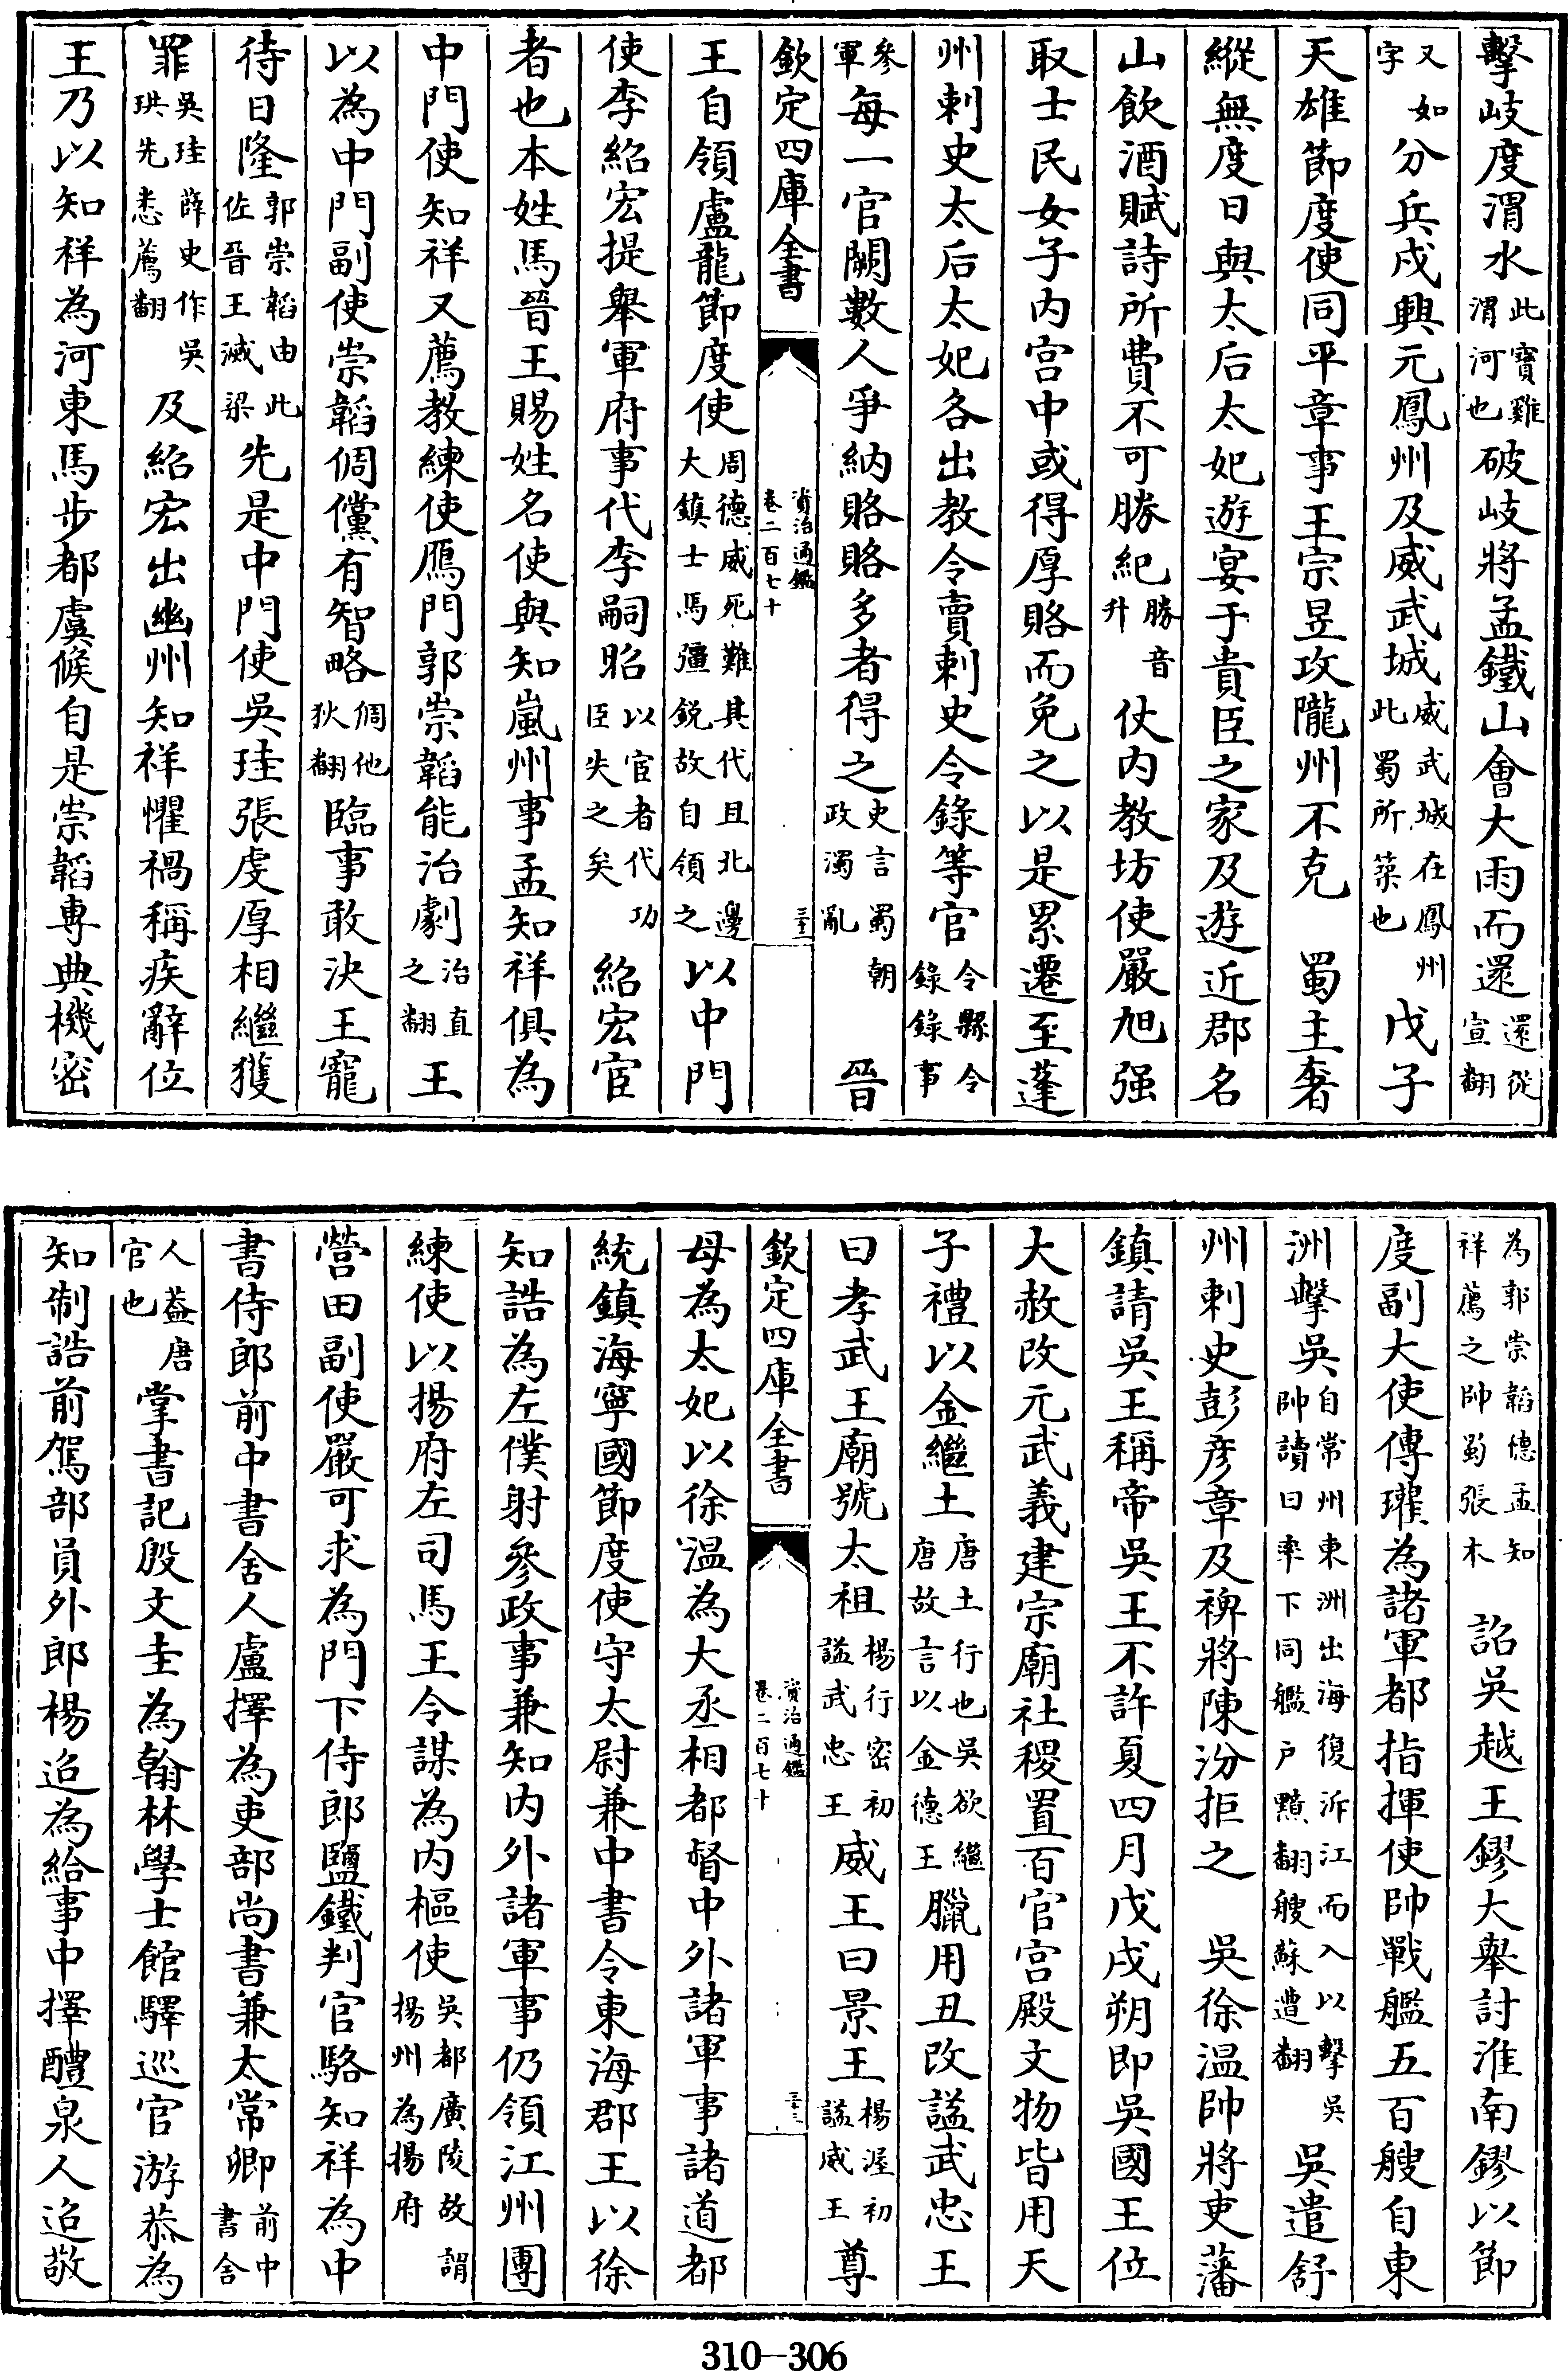 擊岐度渭水此寳雞渭河也破岐將孟鐵山會大雨而還還從宣翻
又如字分兵戍興元鳳州及威武城威武城在鳳州此蜀所築也戊子
天雄節度使同平章事王宗昱攻隴州不克　蜀主奢
縱無度日與太后太妃遊宴于貴臣之家及遊近郡名
山飲酒賦詩所費不可勝紀勝音升仗内教坊使嚴旭强
取士民女子内宫中或得厚賂而免之以是累遷至蓬
州刺史太后太妃各出教令賣刺史令錄等官令縣令錄錄事
參軍每一官闕數人爭納賂賂多者得之史言蜀朝政濁亂　晉
欽定四庫全書　資治通鑑卷二百七十　三十二
王自領盧龍節度使周德威死難其代且北邊大鎮士馬彊鋭故自領之以中門
使李紹宏提舉軍府事代李嗣昭以宦者代功臣失之矣紹宏宦
者也本姓馬晉王賜姓名使與知嵐州事孟知祥俱為
中門使知祥又薦教練使鴈門郭崇韜能治劇治直之翻王
以為中門副使崇韜倜儻有智略倜他狄翻臨事敢決王寵
待日隆郭崇韜由此佐晉王滅梁先是中門使吳珪張虔厚相繼獲
罪吳珪薛史作吳珙先悉薦翻及紹宏出幽州知祥懼禍稱疾辭位
王乃以知祥為河東馬步都虞候自是崇韜專典機密
為郭崇韜德孟知祥薦之帥蜀張木　詔吳越王鏐大舉討淮南鏐以節
度副大使傳瓘為諸軍都指揮使帥戰艦五百艘自東
洲擊吳自常州東洲出海復泝江而入以擊吳帥讀曰率下同艦戸黯翻艘蘇遭翻吳遣舒
州刺史彭彦章及裨將陳汾拒之　吳徐温帥將吏藩
鎮請吳王稱帝吳王不許夏四月戊戌朔即吳國王位
大赦改元武義建宗廟社稷置百官宫殿文物皆用天
子禮以金繼土唐土行也吳欲繼唐故言以金德王臘用丑改謚武忠王
曰孝武王廟號太祖楊行密初謚武忠王威王曰景王楊渥初謚威王尊
欽定四庫全書　資治通鑑卷二百七十　三十三
母為太妃以徐温為大丞相都督中外諸軍事諸道都
統鎮海寧國節度使守太尉兼中書令東海郡王以徐
知誥為左僕射參政事兼知内外諸軍事仍領江州團
練使以揚府左司馬王令謀為内樞使吳都廣陵故謂揚州為揚府
營田副使嚴可求為門下侍郎鹽鐵判官駱知祥為中
書侍郎前中書舍人盧擇為吏部尚書兼太常卿前中書舍
人葢唐官也掌書記殷文圭為翰林學士館驛巡官游恭為
知制誥前駕部員外郎楊迢為給事中擇醴泉人迢敬
310—306